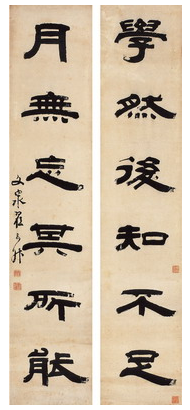 學然後知不足
月無忘其所能